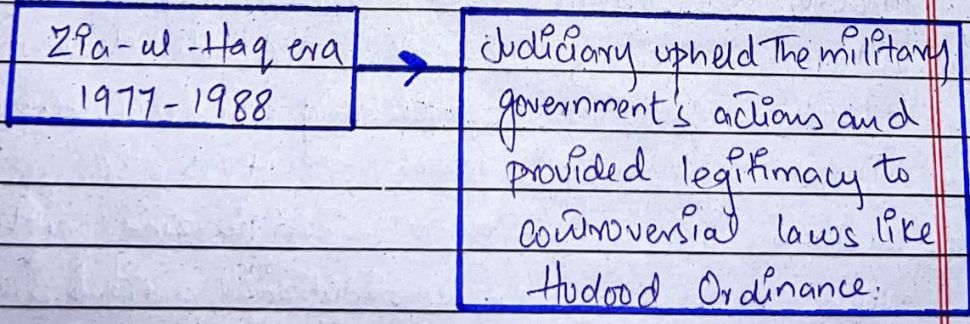 Zia-ul-Haq era
1977-1988
Judiciary upheld The military
government's actions and
provided legitimacy to
controversial laws like
Hudood Ordinance.